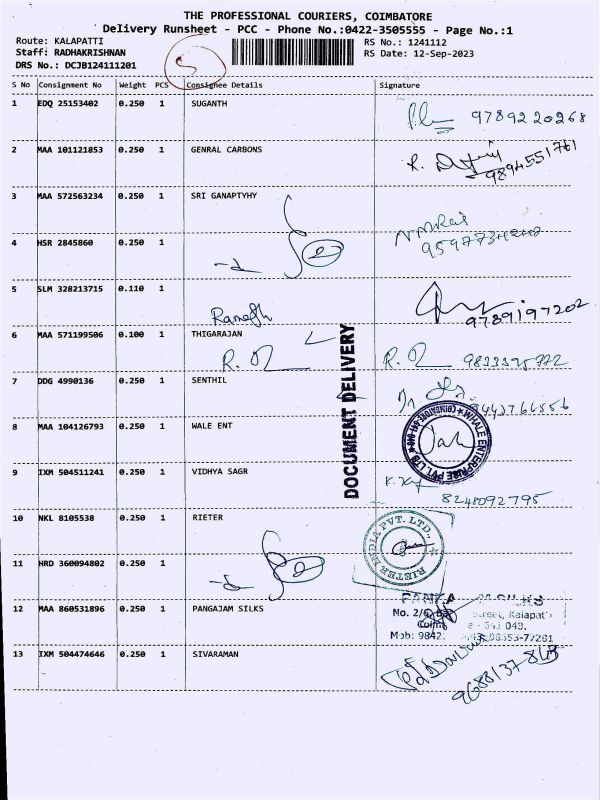 THE PROFESSIONAL COURIERS, COIMBATORE
Delivery Runsheet - PCC - Phone No.:0422-3505555 - Page No.:1
Route: KALAPATTI
RS No.: 1241112
Staff: RADHAKRISHNAN
RS Date: 12-Sep-2023
DRS No.: DCJB124111201
S No Consignment No Weight PCS Consignee Details Signature
1 EDQ 25153402 0.250 1 SUGANTH
9789220268
2 MAA 101121853 0.250 1 GENRAL CARBONS
9894551761
3 MAA 572563234 0.250 1 SRI GANAPTYHY
4 HSR 2845860 0.250 1
5 SLM 328213715 0.110 1
Ramesh
9789197202
6 MAA 571199506 0.100 1 THIGARAJAN
7 DDG 4990136 0.250 1 SENTHIL
DOCUMENT DELIVERY
8 MAA 104126793 0.250 1 WALE ENT
WHALE ENTERPRISE PVT LTD
9 IXM 504511241 0.250 1 VIDHYA SAGR
8248092795
10 NKL 8105538 0.250 1 RIETER
RIETER INDIA PVT. LTD.,
11 HRD 360094802 0.250 1
12 MAA 860531896 0.250 1 PANGAJAM SILKS
SILKS
No. 2/ Street, Kalapatti
Mob: 9842 98353-77281
13 IXM 504474646 0.250 1 SIVARAMAN